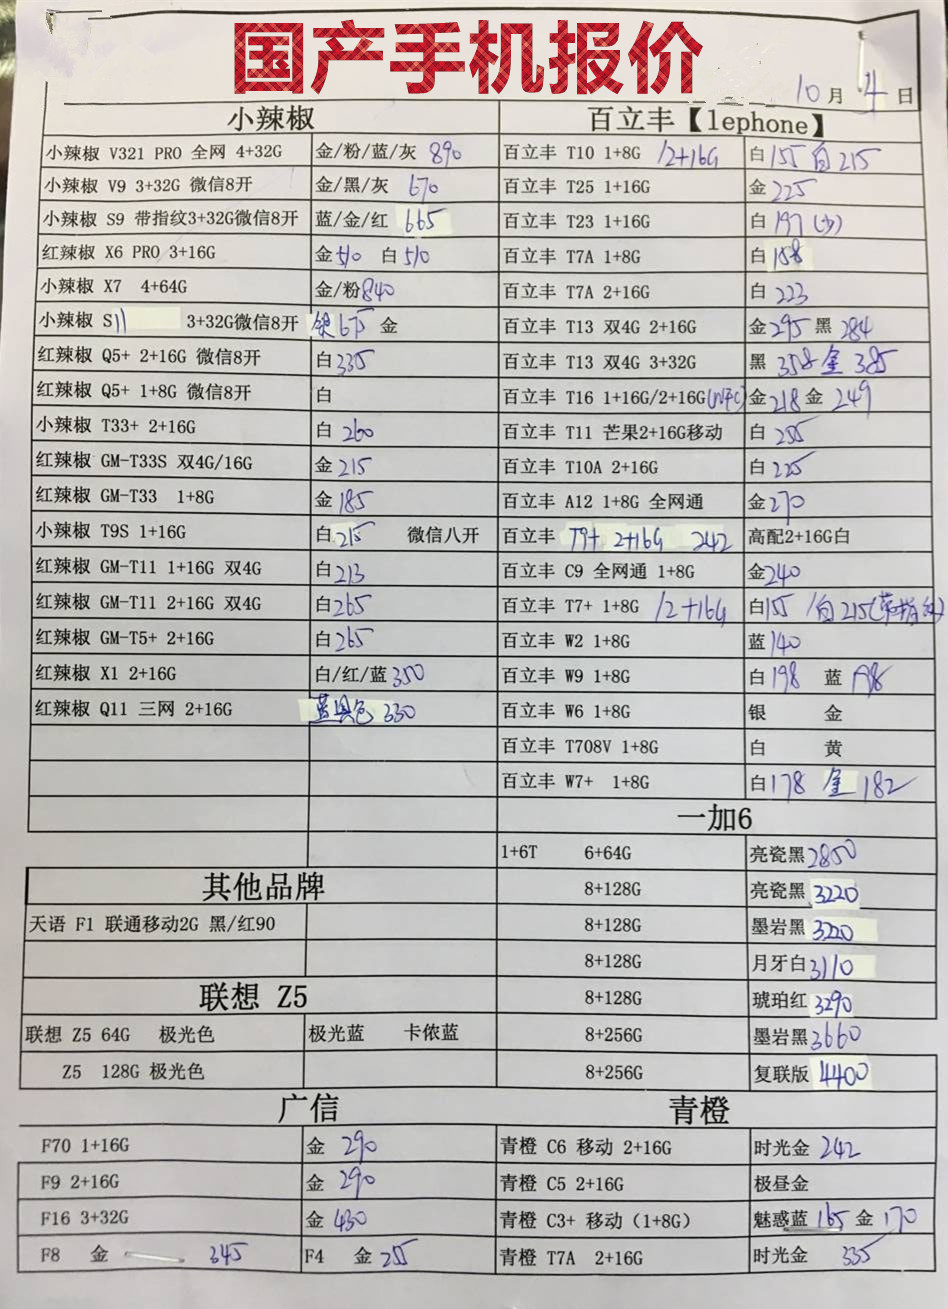 国产手机报价
10月4日
小辣椒
小辣椒 V321 PRO 全网 4+32G 金/粉/蓝/灰 890
小辣椒 V9 3+32G 微信8开 金/黑/灰 670
小辣椒 S9 带指纹3+32G微信8开 蓝/金/红 665
红辣椒 X6 PRO 3+16G 金510 白510
小辣椒 X7 4+64G 金/粉840
小辣椒 S11 3+32G微信8开 银675 金
红辣椒 Q5+ 2+16G 微信8开 白335
红辣椒 Q5+ 1+8G 微信8开 白
小辣椒 T33+ 2+16G 白 260
红辣椒 GM-T33S 双4G/16G 金 215
红辣椒 GM-T33 1+8G 金 185
小辣椒 T9S 1+16G 白215 微信八开
红辣椒 GM-T11 1+16G 双4G 白213
红辣椒 GM-T11 2+16G 双4G 白265
红辣椒 GM-T5+ 2+16G 白265
红辣椒 X1 2+16G 白/红/蓝350
红辣椒 Q11 三网 2+16G 330
其他品牌
天语 F1 联通移动2G 黑/红90
联想 Z5
联想 Z5 64G 极光色 极光蓝 卡侬蓝
Z5 128G 极光色
广信
F70 1+16G 金 290
F9 2+16G 金 290
F16 3+32G 金 430
F8 金 345 F4 金 255
百立丰【lephone】
百立丰 T10 1+8G /2+16G 白155 白215
百立丰 T25 1+16G 金225
百立丰 T23 1+16G 白 197(少)
百立丰 T7A 1+8G 白 158
百立丰 T7A 2+16G 白 223
百立丰 T13 双4G 2+16G 金295 黑 284
百立丰 T13 双4G 3+32G 黑 358 金 385
百立丰 T16 1+16G/2+16G 金218 金 249
百立丰 T11 芒果2+16G移动 白 255
百立丰 T10A 2+16G 白 225
百立丰 A12 1+8G 全网通 金270
百立丰 T9+ 2+16G 242 高配2+16G白
百立丰 C9 全网通 1+8G 金240
百立丰 T7+ 1+8G /2+16G 白155 /白215(带指纹)
百立丰 W2 1+8G 蓝140
百立丰 W9 1+8G 白198 蓝 198
百立丰 W6 1+8G 银 金
百立丰 T708V 1+8G 白 黄
百立丰 W7+ 1+8G 白178 金 182
一加6
1+6T 6+64G 亮瓷黑2850
8+128G 亮瓷黑 3220
8+128G 墨岩黑 3220
8+128G 月牙白3110
8+128G 琥珀红 3290
8+256G 墨岩黑3660
8+256G 复联版 4400
青橙
青橙 C6 移动 2+16G 时光金 242
青橙 C5 2+16G 极昼金
青橙 C3+ 移动（1+8G） 魅惑蓝 165 金 170
青橙 T7A 2+16G 时光金 335